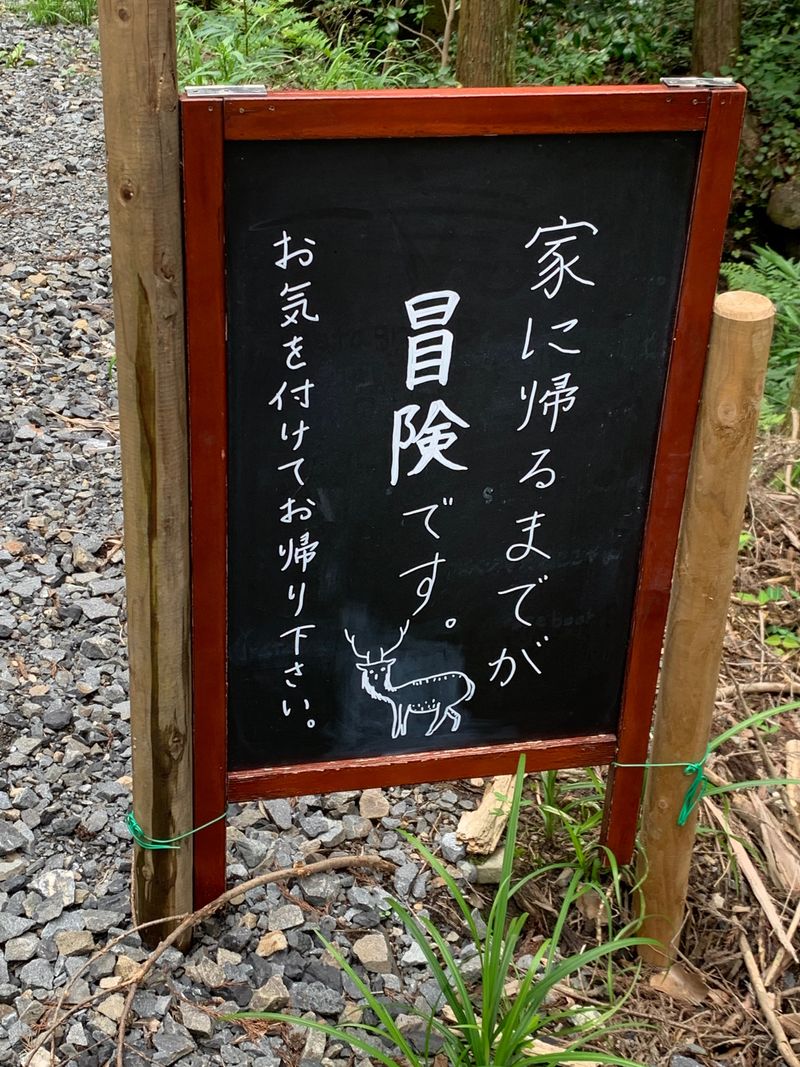 家に帰るまでが
冒険です。
お気を付けてお帰り下さい。